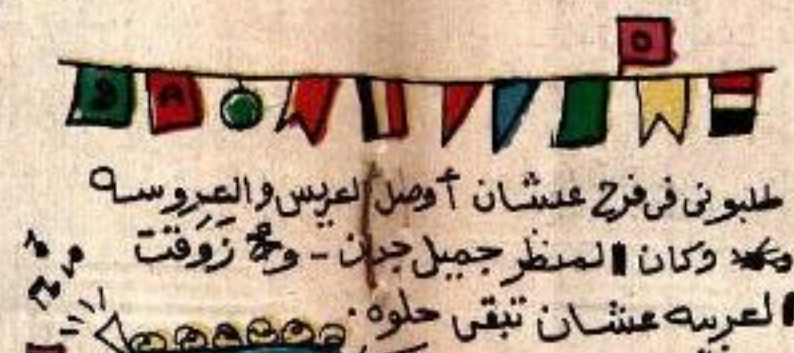 طلبونى فى فرح علشان أوصل العريس والعروسه
وكان المنظر جميل جدن - و زَوقت
العربيه عشان تبقى حلوه.